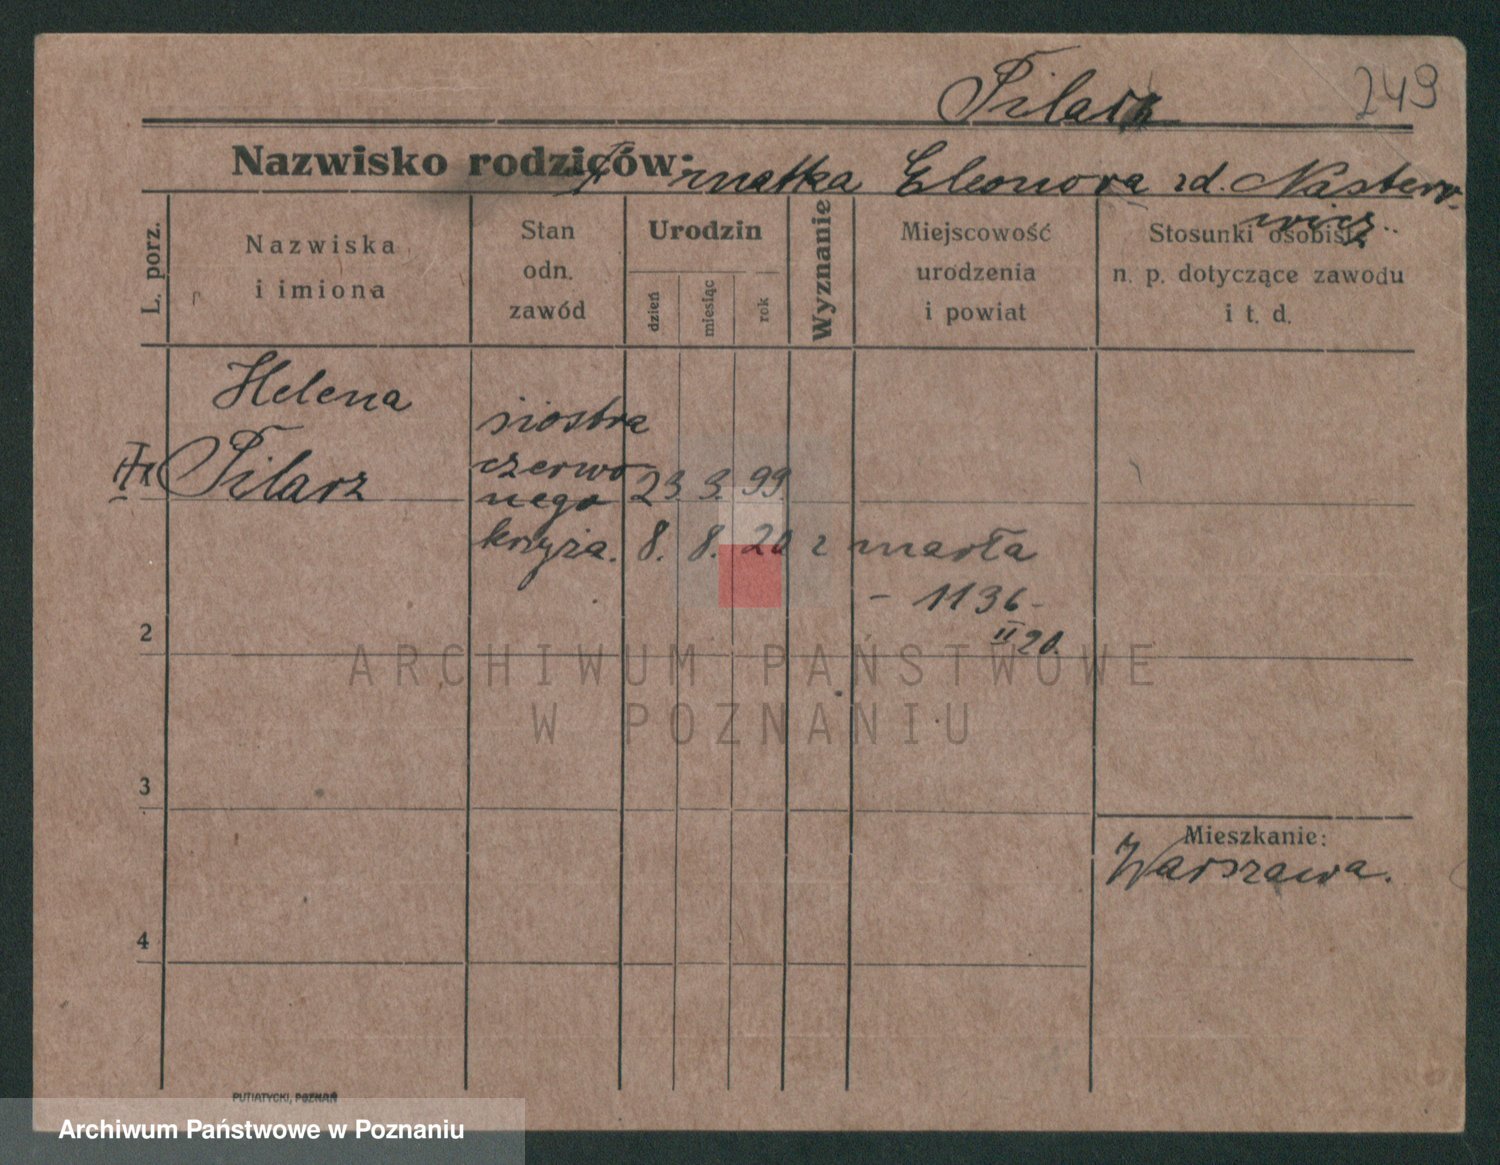 Pilarz
249
Nazwisko rodziców: matka Eleonora zd. Nasterowicz
L. porz.
Nazwiska
i imiona
Stan
odn.
zawód
Urodzin
dzień
miesiąc
rok
Wyznanie
Miejscowość
urodzenia
i powiat
Stosunki osobiste
n. p. dotyczące zawodu
i t. d.
Helena
Pilarz
siostra
czerwo
nego
krzyża.
23. 3. 99.
8. 8. 20 zmarła
- 1136 -
II 20.
2
3
4
Mieszkanie:
Warszawa.
ARCHIWUM PAŃSTWOWE
W POZNANIU
PUTIATYCKI, POZNAŃ
Archiwum Państwowe w Poznaniu